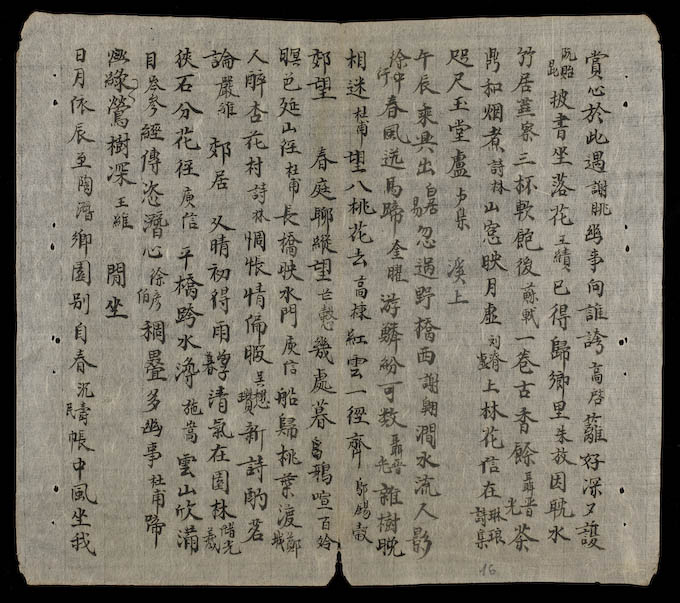 賞心於此遇謝朓幽事向誰誇高啓籬好深又護
阮貽昆披書坐落花王績已得歸鄉里朱放因耽水
竹居 寮三杯軟飽後蘇軾一卷古香餘聶晋光茶
鼎和烟煮詩林山窓映月虛刘脊虛上林花信在琳琅詩集
咫尺玉堂廬卢集 溪上
午辰乘興出白居易忽過野橋西謝翺澗水流人影
徐中行春風送馬蹄金曜游鱗紛可数聶晋光雜樹晚
相迷杜甫望入桃花去高棣紅雲一徑齊鄔錫
郊望 春庭聊縱望 幾處暮 鴉喧百
暝色延山徑杜甫長橋映水門庾信船歸桃葉渡鄭城
人醉杏花村詩林惆悵情偏暇吴懋瓚新詩酌茗
論嚴維 郊居 又晴初得雨 清氣在園林儲光羲
狹石分花徑庾信平橋跨水潯施 雲山欣滿
目岑参經傳恣潛心徐彦伯稠疊多幽事杜甫啼
綠鶯樹深王維 閒坐
日月依辰至陶潛鄉園别自春沉壽民帳中風坐我
16